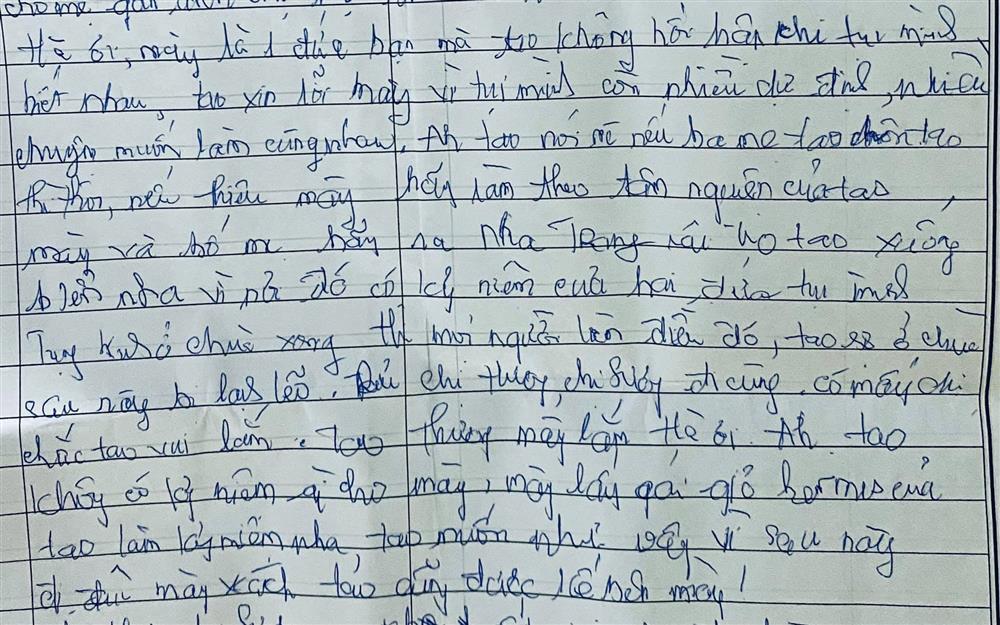 cho mẹ
Hề ơi, mày là 1 đứa bạn mà tao không hối hận khi tụi mình
biết nhau, tao xin lỗi mày vì tụi mình còn nhiều dự định, nhiều
chuyện muốn làm cùng nhau. Ah tao nói nè nếu ba mẹ tao chôn tao
thì thôi, nếu thiêu mày hãy làm theo tâm nguyện của tao
mày và bố mẹ hãy ra nha Trang rải tro tao xuống
biển nha vì nơi đó có kỷ niệm của hai đứa tụi mình
Tụng kinh ở chùa xong thì mọi người làm điều đó, tao sẽ ở chùa
sau này bị lau lẽo. chị thuỷ, chị đi cùng. có mấy chị
chắc tao vui lắm. tao thương mày lắm Hề ơi. Ah tao
không có kỷ niệm gì cho mày, mày lấy gái giỏ hermes của
tao làm kỷ niệm nha, tao muốn như vậy vì sau này
đi đâu mày xách tao cũng được kế bên mày!